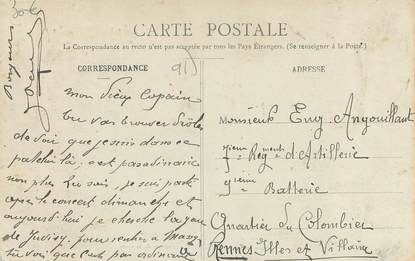 CARTE POSTALE
La Correspondance au recto n'est pas acceptée par tous les Pays Étrangers. (Se renseigner à la Poste.)
CORRESPONDANCE
ADRESSE
Bonjours
mon Vieux Copain
tu vas trouver drôle
de voir que je suis dans ce
patelin là, c'est pas
non plus tu vois, je suis parti
après le concert dimanche et
aujourd'hui je cherche
de Juvisy pour rentrer a
tu voi que c'est pas ordinaire
Monsieur Eug. Angouillant
7ieme Regment d'Artillerie
9ieme Batterie
Quartier du Colombier
Rennes Illes et Villaine